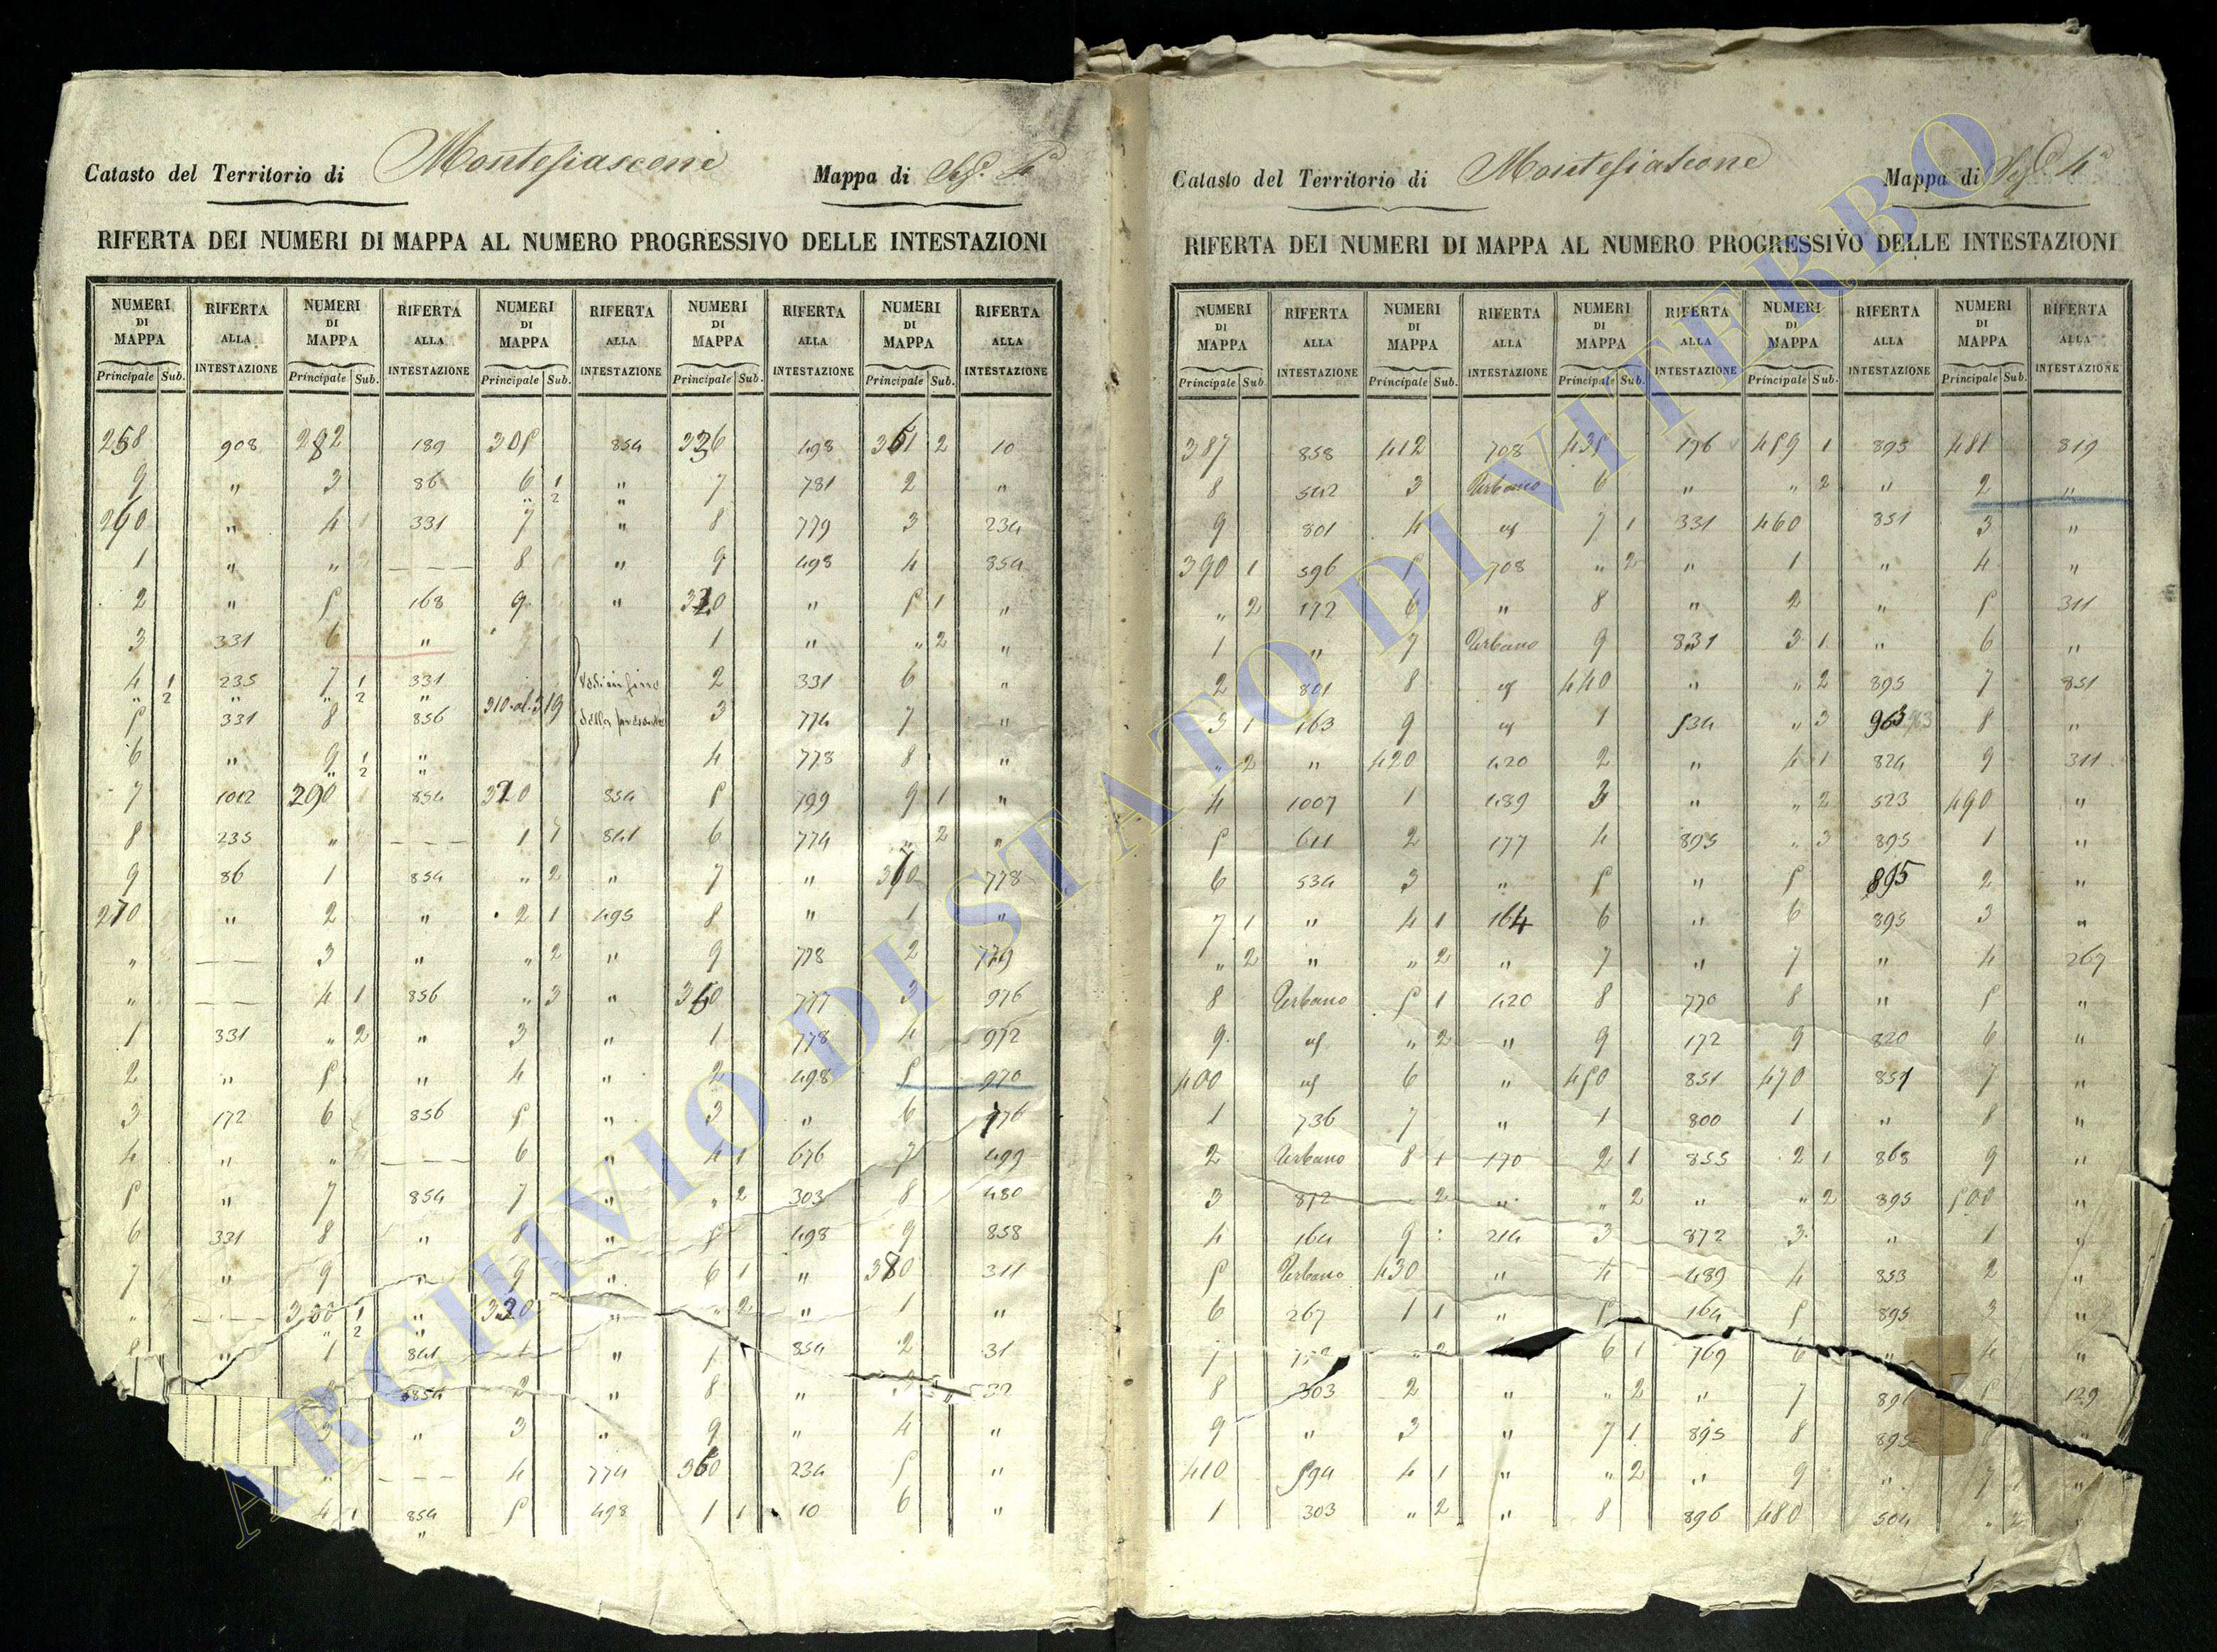 Catasto del Territorio di Montefiascone Mappa di Sez. 4ª
RIFERTA DEI NUMERI DI MAPPA AL NUMERO PROGRESSIVO DELLE INTESTAZIONI
NUMERI DI MAPPA RIFERTA ALLA INTESTAZIONE NUMERI DI MAPPA RIFERTA ALLA INTESTAZIONE NUMERI DI MAPPA RIFERTA ALLA INTESTAZIONE NUMERI DI MAPPA RIFERTA ALLA INTESTAZIONE NUMERI DI MAPPA RIFERTA ALLA INTESTAZIONE
Principale Sub. Principale Sub. Principale Sub. Principale Sub. Principale Sub.
258 908 282 189 305 854 336 498 361 2 10
9 " 3 86 6 1 " 7 781 2 "
" 2 "
260 " 4 331 7 " 8 779 3 234
1 " " — — — 8 " 9 498 4 854
2 " 5 168 9 " " 5 1 "
3 331 6 " 1 " " 2 "
4 1 235 7 1 331 2 331 6 "
" 2 " " 2 " 310 al 319
5 331 8 856 3 774 7 "
6 " 9 1 " 4 778 8 "
" 2 "
7 1012 290 854 320 854 5 799 9 1 "
8 235 " — — — 1 1 841 6 774 " 2 "
9 86 1 854 " 2 " 7 " 370 778
270 " 2 " 2 1 495 8 " 1 "
" — — 3 " " 2 " 9 778 2 779
" — — 4 1 856 " 3 " 777 3 976
1 331 " 2 " 3 " 1 778 4 972
2 " 5 " 4 " 2 498 5 970
3 172 6 856 5 " 3 " 6 776
4 " " — — — 6 " 4 1 676 7 499
5 " 7 854 7 " " 2 303 8 480
6 331 8 " 8 " 5 498 9 858
7 " 9 " 9 " 6 1 " 380 311
" — — 300 1 " 330 " " 2 " 1 "
" 2 "
8 " 1 841 1 " 854 2 31
854 2 " 8 " 32
3 " 3 " 9 " 4 "
" — — — 4 774 360 234 5 "
4 1 854 5 498 1 1 10 6 "
"
Catasto del Territorio di Montefiascone Mappa di Sez. 4ª
RIFERTA DEI NUMERI DI MAPPA AL NUMERO PROGRESSIVO DELLE INTESTAZIONI
NUMERI DI MAPPA RIFERTA ALLA INTESTAZIONE NUMERI DI MAPPA RIFERTA ALLA INTESTAZIONE NUMERI DI MAPPA RIFERTA ALLA INTESTAZIONE NUMERI DI MAPPA RIFERTA ALLA INTESTAZIONE NUMERI DI MAPPA RIFERTA ALLA INTESTAZIONE
Principale Sub. Principale Sub. Principale Sub. Principale Sub. Principale Sub.
387 858 412 708 435 176 459 1 895 481 819
8 542 3 Urbano 6 " " 2 " 2 "
9 801 4 7 1 331 460 851 3 "
390 1 596 5 708 " 2 " 1 " 4 "
" 2 172 6 " 8 " 2 " 5 311
1 " 7 Urbano 9 831 3 1 " 6 "
2 801 8 440 " " 2 895 7 851
3 1 163 9 1 534 " 3 963 8 "
" 2 " 420 420 2 " 4 1 824 9 311
4 1007 1 489 3 " " 2 523 490 "
5 611 2 177 4 895 " 3 895 1 "
6 534 3 " 5 " 5 895 2 "
7 1 " 4 1 164 6 " 6 895 3 "
" 2 " " 2 " 7 " 7 " 4 267
8 Urbano 5 1 420 8 770 8 " 5 "
9 " 2 " 9 172 9 820 6 "
400 6 " 450 851 470 851 7 "
1 736 7 " 1 800 1 " 8 "
2 Urbano 8 1 170 2 1 855 2 1 868 9 "
3 872 " 2 " " 2 " " 2 895 500 "
4 164 9 214 3 872 3 " 1 "
5 Urbano 430 " 4 489 4 853 2 "
6 267 1 1 " 5 164 5 895 3 "
" 2 6 1 769 6 " 4 "
8 303 2 " " 2 " 7 896 5 129
9 " 3 " 7 1 895 8 895 "
410 594 4 1 " " 2 " 9 " 7 1 "
1 303 " 2 " 8 896 480 504 " 2 "
ARCHIVIO DI STATO DI VITERBO